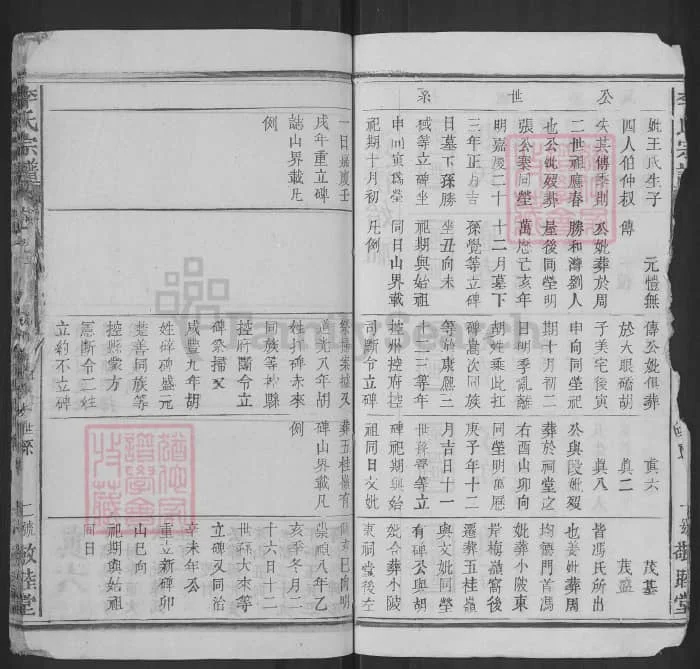 公世系
妣王氏生子
四人伯仲叔
失其傳季則
二世祖應春
也公妣歿葬
張公寨同塋
明嘉慶二十
三年正方吉
日墓下孫勝
等立碑坐
申向寅爲塋
祀期十月初
元體無
傳
公妣葬於周
勝和灣劉人
屋後同塋明
萬歷亥年
十二月墓下
孫覺等立碑
坐丑向未
祀期與始祖
同日山界載
凡例
傳公妣俱葬
於大眼礄胡
子美宅後寅
申向同塋祀
期十月初二
日明季亂離
胡姓乘此扛
碑嵩次同族
等於康熙三
十二三等年
控州控府控
司斷令立碑
真六
真二
真八
公與段妣歿
葬於祠堂之
右酉山卯向
同塋明萬歷
庚子年十二
月吉日十一
世譽覺等立
碑祀期與始
祖同日文妣
茂基
茂盛
皆馮氏所出
也姜妣葬周
均德門首馮
妣葬小陂東
岸梅嶺窩後
遷葬五桂嶺
與文妣同塋
有碑公與胡
妣合葬小陂
東祠堂後左
一日嘉慶壬
戌年重立碑
誌山界載凡
例
祭掃案據又
道光八年胡
姓打碑赤來
同族等神縣
控府斷令立
碑祭掃又
咸豐九年胡
姓碎碑盛元
楚善同族等
控縣蒙方
憲斷令二姓
立約不立碑
葬五桂嶺有
碑山界載凡
例
巳向明
崇禎八年乙
亥季冬月二
十六日十二
世孫大來等
立碑又同治
辛未年公
重立新碑卯
山巳向
祀期與始祖
同日
李氏宗譜
世系
二號
敦睦堂
FamilySearch